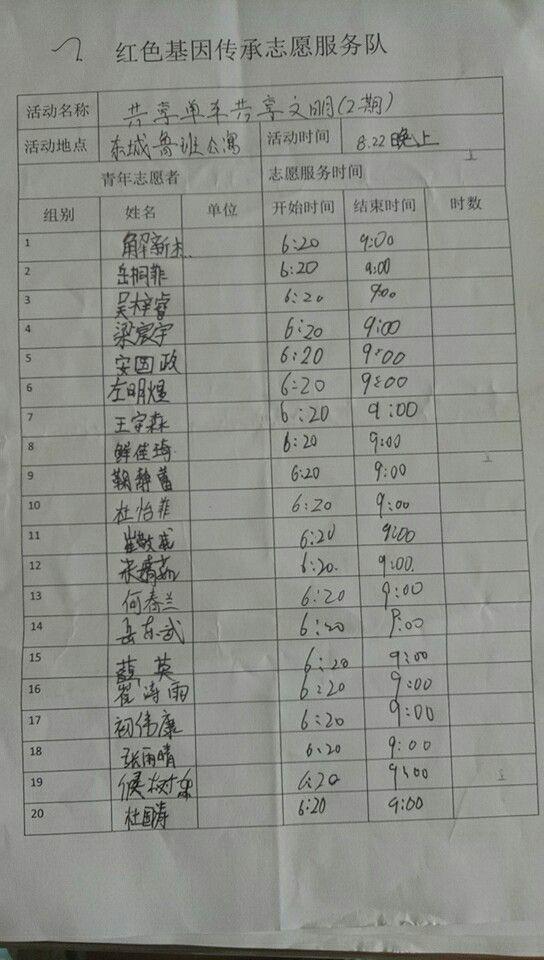 红色基因传承志愿服务队
活动名称 共享单车共享文明(2期)
活动地点 东城鲁班公寓 活动时间 8.22晚上
青年志愿者 志愿服务时间
组别 姓名 单位 开始时间 结束时间 时数
1 解新杰 6:20 9:00
2 岳桐菲 6:20 9:00
3 吴梓睿 6:20 9:00
4 梁宸宇 6:20 9:00
5 安国政 6:20 9:00
6 左明煜 6:20 9:00
7 王宇森 6:20 9:00
8 鲜佳琦 6:20 9:00
9 鞠静蕾 6:20 9:00
10 杜怡菲 6:20 9:00
11 崔敬斌 6:20 9:00
12 宋婧茹 6:20 9:00
13 何春兰 6:20 9:00
14 岳东武 6:20 9:00
15 英 6:20 9:00
16 崔涛雨 6:20 9:00
17 初伟康 6:20 9:00
18 张雨晴 6:20 9:00
19 候树 6:20 9:00
20 杜国涛 6:20 9:00